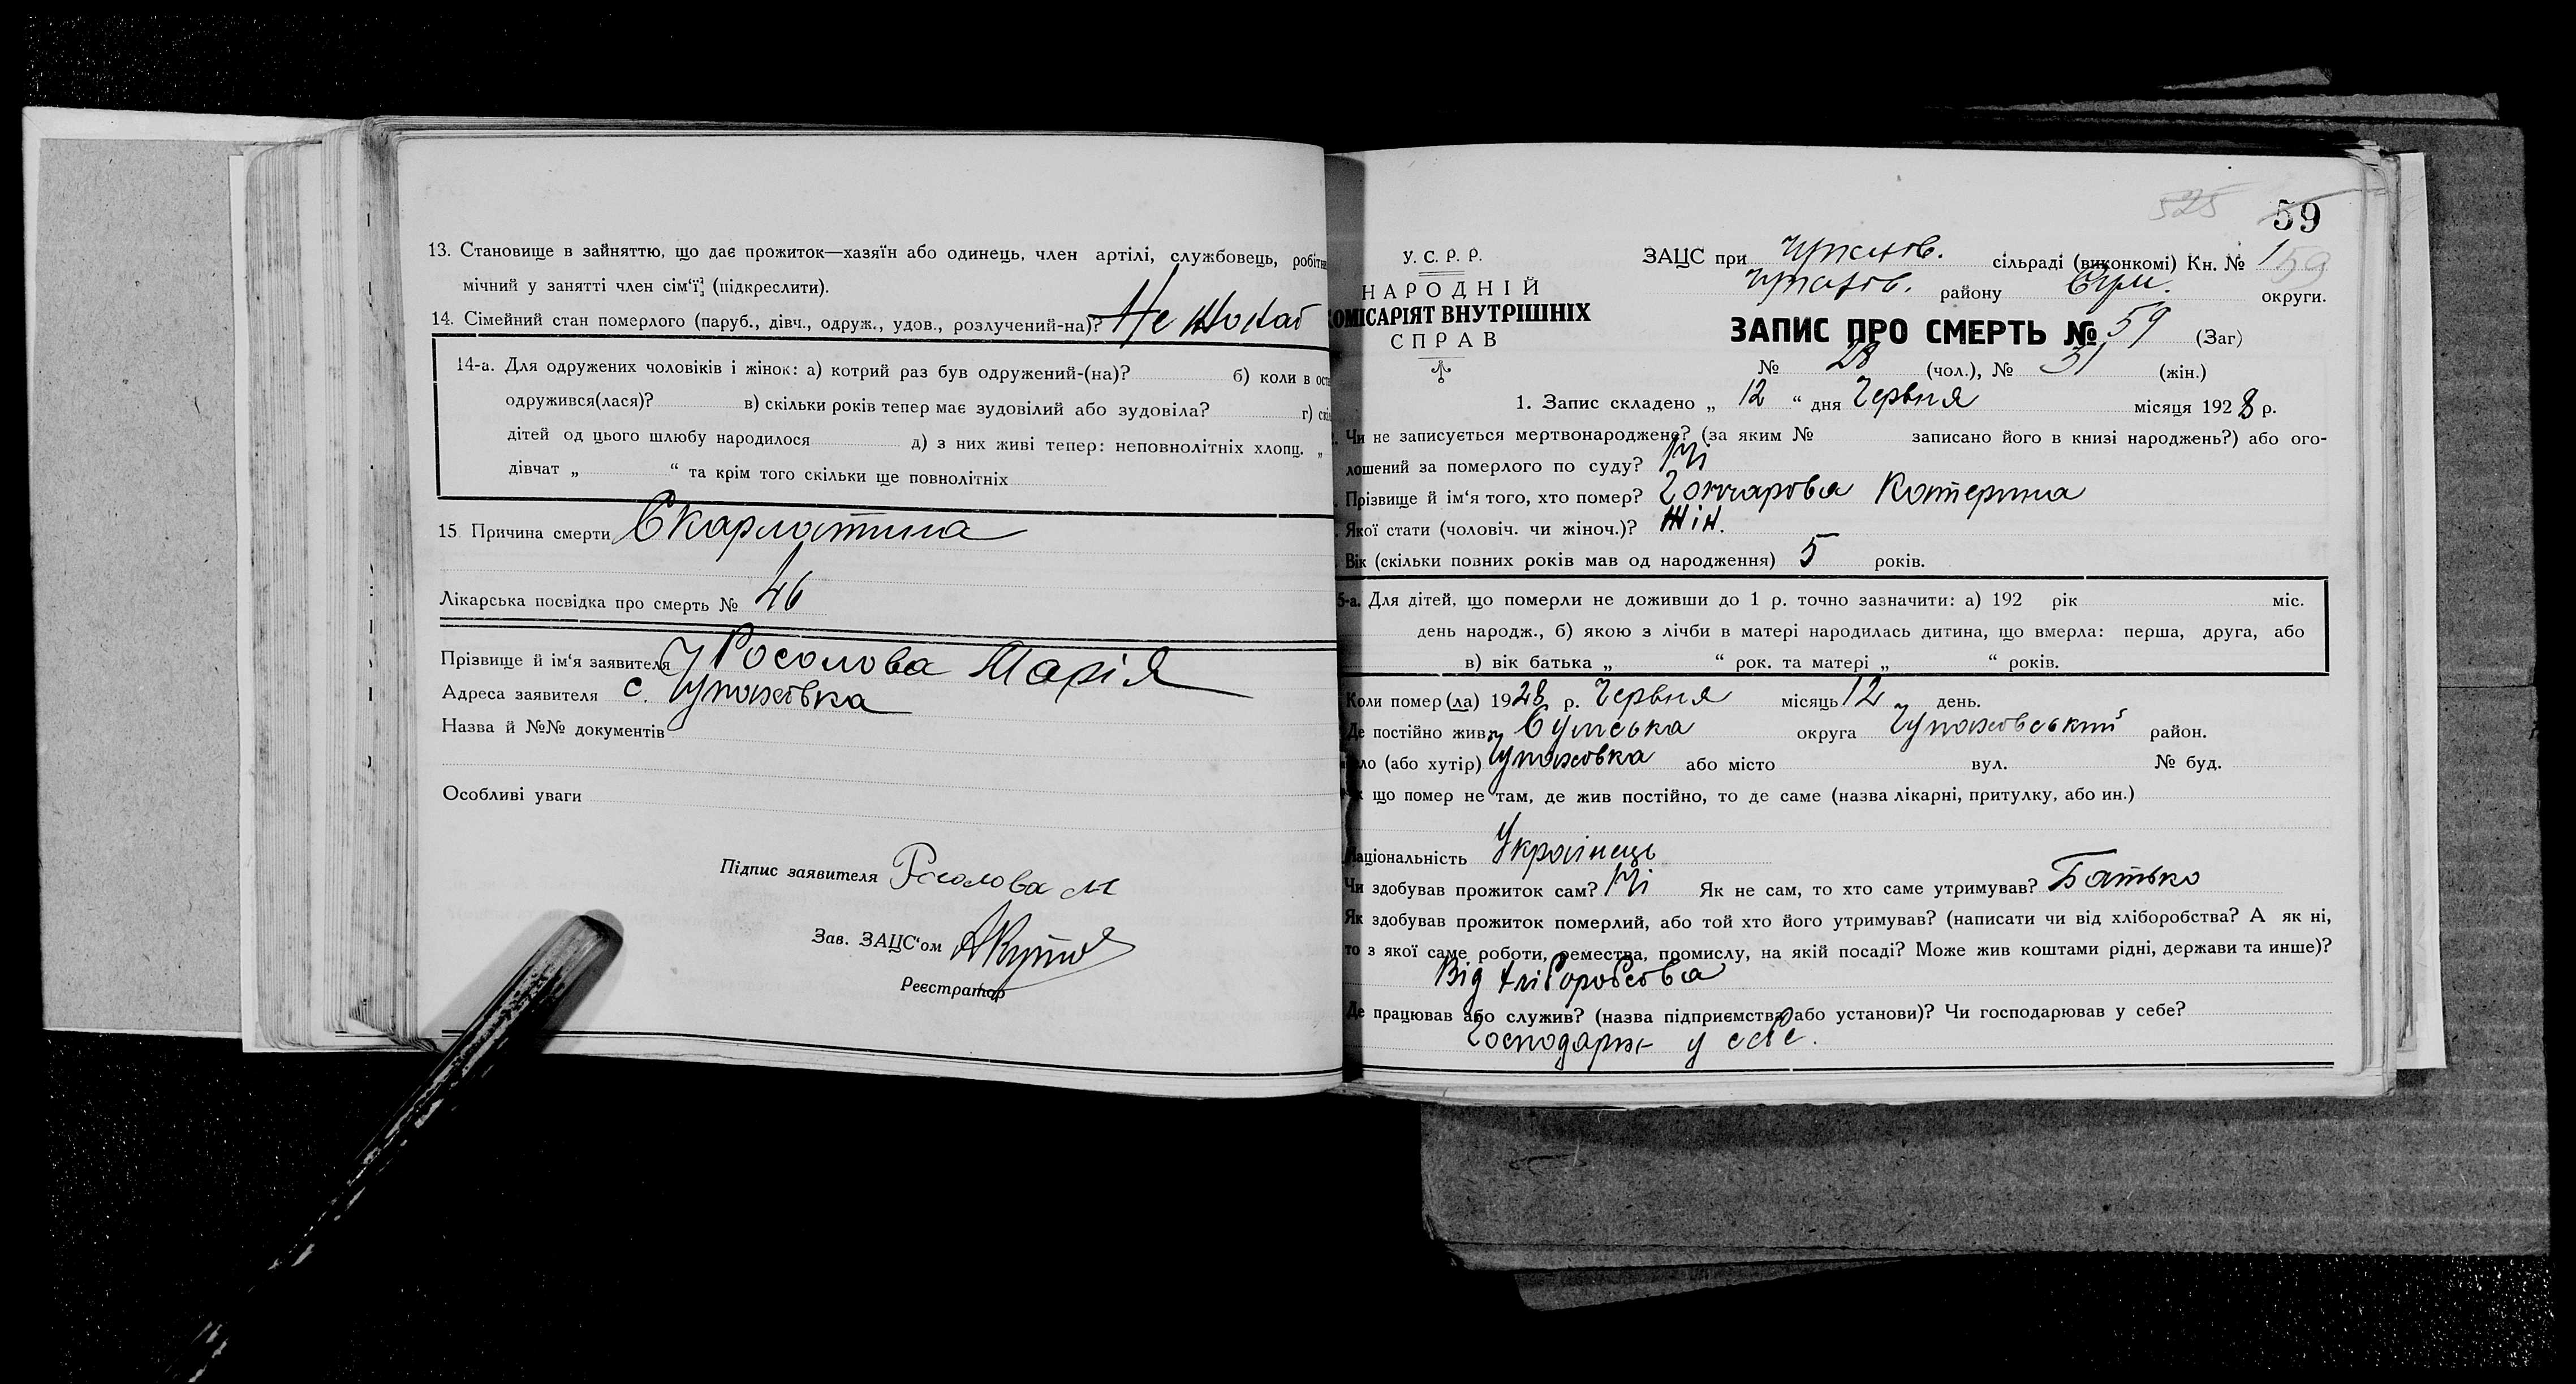 13. Становище в зайняттю, що дає прожиток—хазяїн або одинець, член артілі, службовець, робітн
мічний у занятті член сім‘ї] (підкреслити).
14. Сімейний стан померлого (паруб., дівч., одруж., удов., розлучений-на)? Не жонат
14-а. Для одружених чоловіків і жінок: а) котрий раз був одружений-(на)? б) коли в ост
одружився(лася)? в) скільки років тепер має зудовілий або зудовіла? г) скі
дітей од цього шлюбу народилося д) з них живі тепер: неповнолітніх хлопц. „
дівчат „ “ та крім того скільки ще повнолітніх
15 Причина смерти Скарлатина
Лікарська посвідка про смерть № 46
Прізвище й ім‘я заявителя Росолова Марія
Адреса заявителя с. Чупаховка
Назва й №№ документів
Особливі уваги
Підпис заявителя Росолова М
Зав. ЗАЦС‘ом
Реєстратор
525 59
У. С. Р. Р.
НАРОДНІЙ
КОМІСАРІЯТ ВНУТРІШНІХ
СПРАВ
ЗАЦС при сільраді (виконкомі) Кн. № 1 59
району Сум. округи.
ЗАПИС ПРО СМЕРТЬ № 59 (Заг)
№ 28 (чол.), № 31 (жін.)
1. Запис складено „ 12 “ дня Червня місяця 1928 р.
Чи не записується мертвонароджене? (за яким № записано його в книзі народжень?) або ого-
лошений за померлого по суду? Ні
Прізвище й ім‘я того, хто помер? Гончарова Катерина
Якої стати (чоловіч. чи жіноч.)? Жін.
Вік (скільки повних років мав од народження) 5 років.
5-а. Для дітей, що померли не доживши до 1 р. точно зазначити: а) 192 рік міс.
день народж., б) якою з лічби в матері народилась дитина, що вмерла: перша, друга, або
в) вік батька „ “ рок. та матері „ “ років.
Коли помер (ла) 1928 р. Червня місяць 12 день.
Де постійно жив Сумська округа Чупаховський район.
ло (або хутір) Чупаховка або місто вул. № буд.
к що помер не там, де жив постійно, то де саме (назва лікарні, притулку, або ин.)
Національність Українець
Чи здобував прожиток сам? Ні Як не сам, то хто саме утримував? Батько
Як здобував прожиток померлий, або той хто його утримував? (написати чи від хліборобства? А як ні,
то з якої саме роботи, ремества, промислу, на якій посаді? Може жив коштами рідні, держави та инше)?
Від хліборобства
Де працював або служив? (назва підприємства або установи)? Чи господарював у себе?
Господарюв у себе.